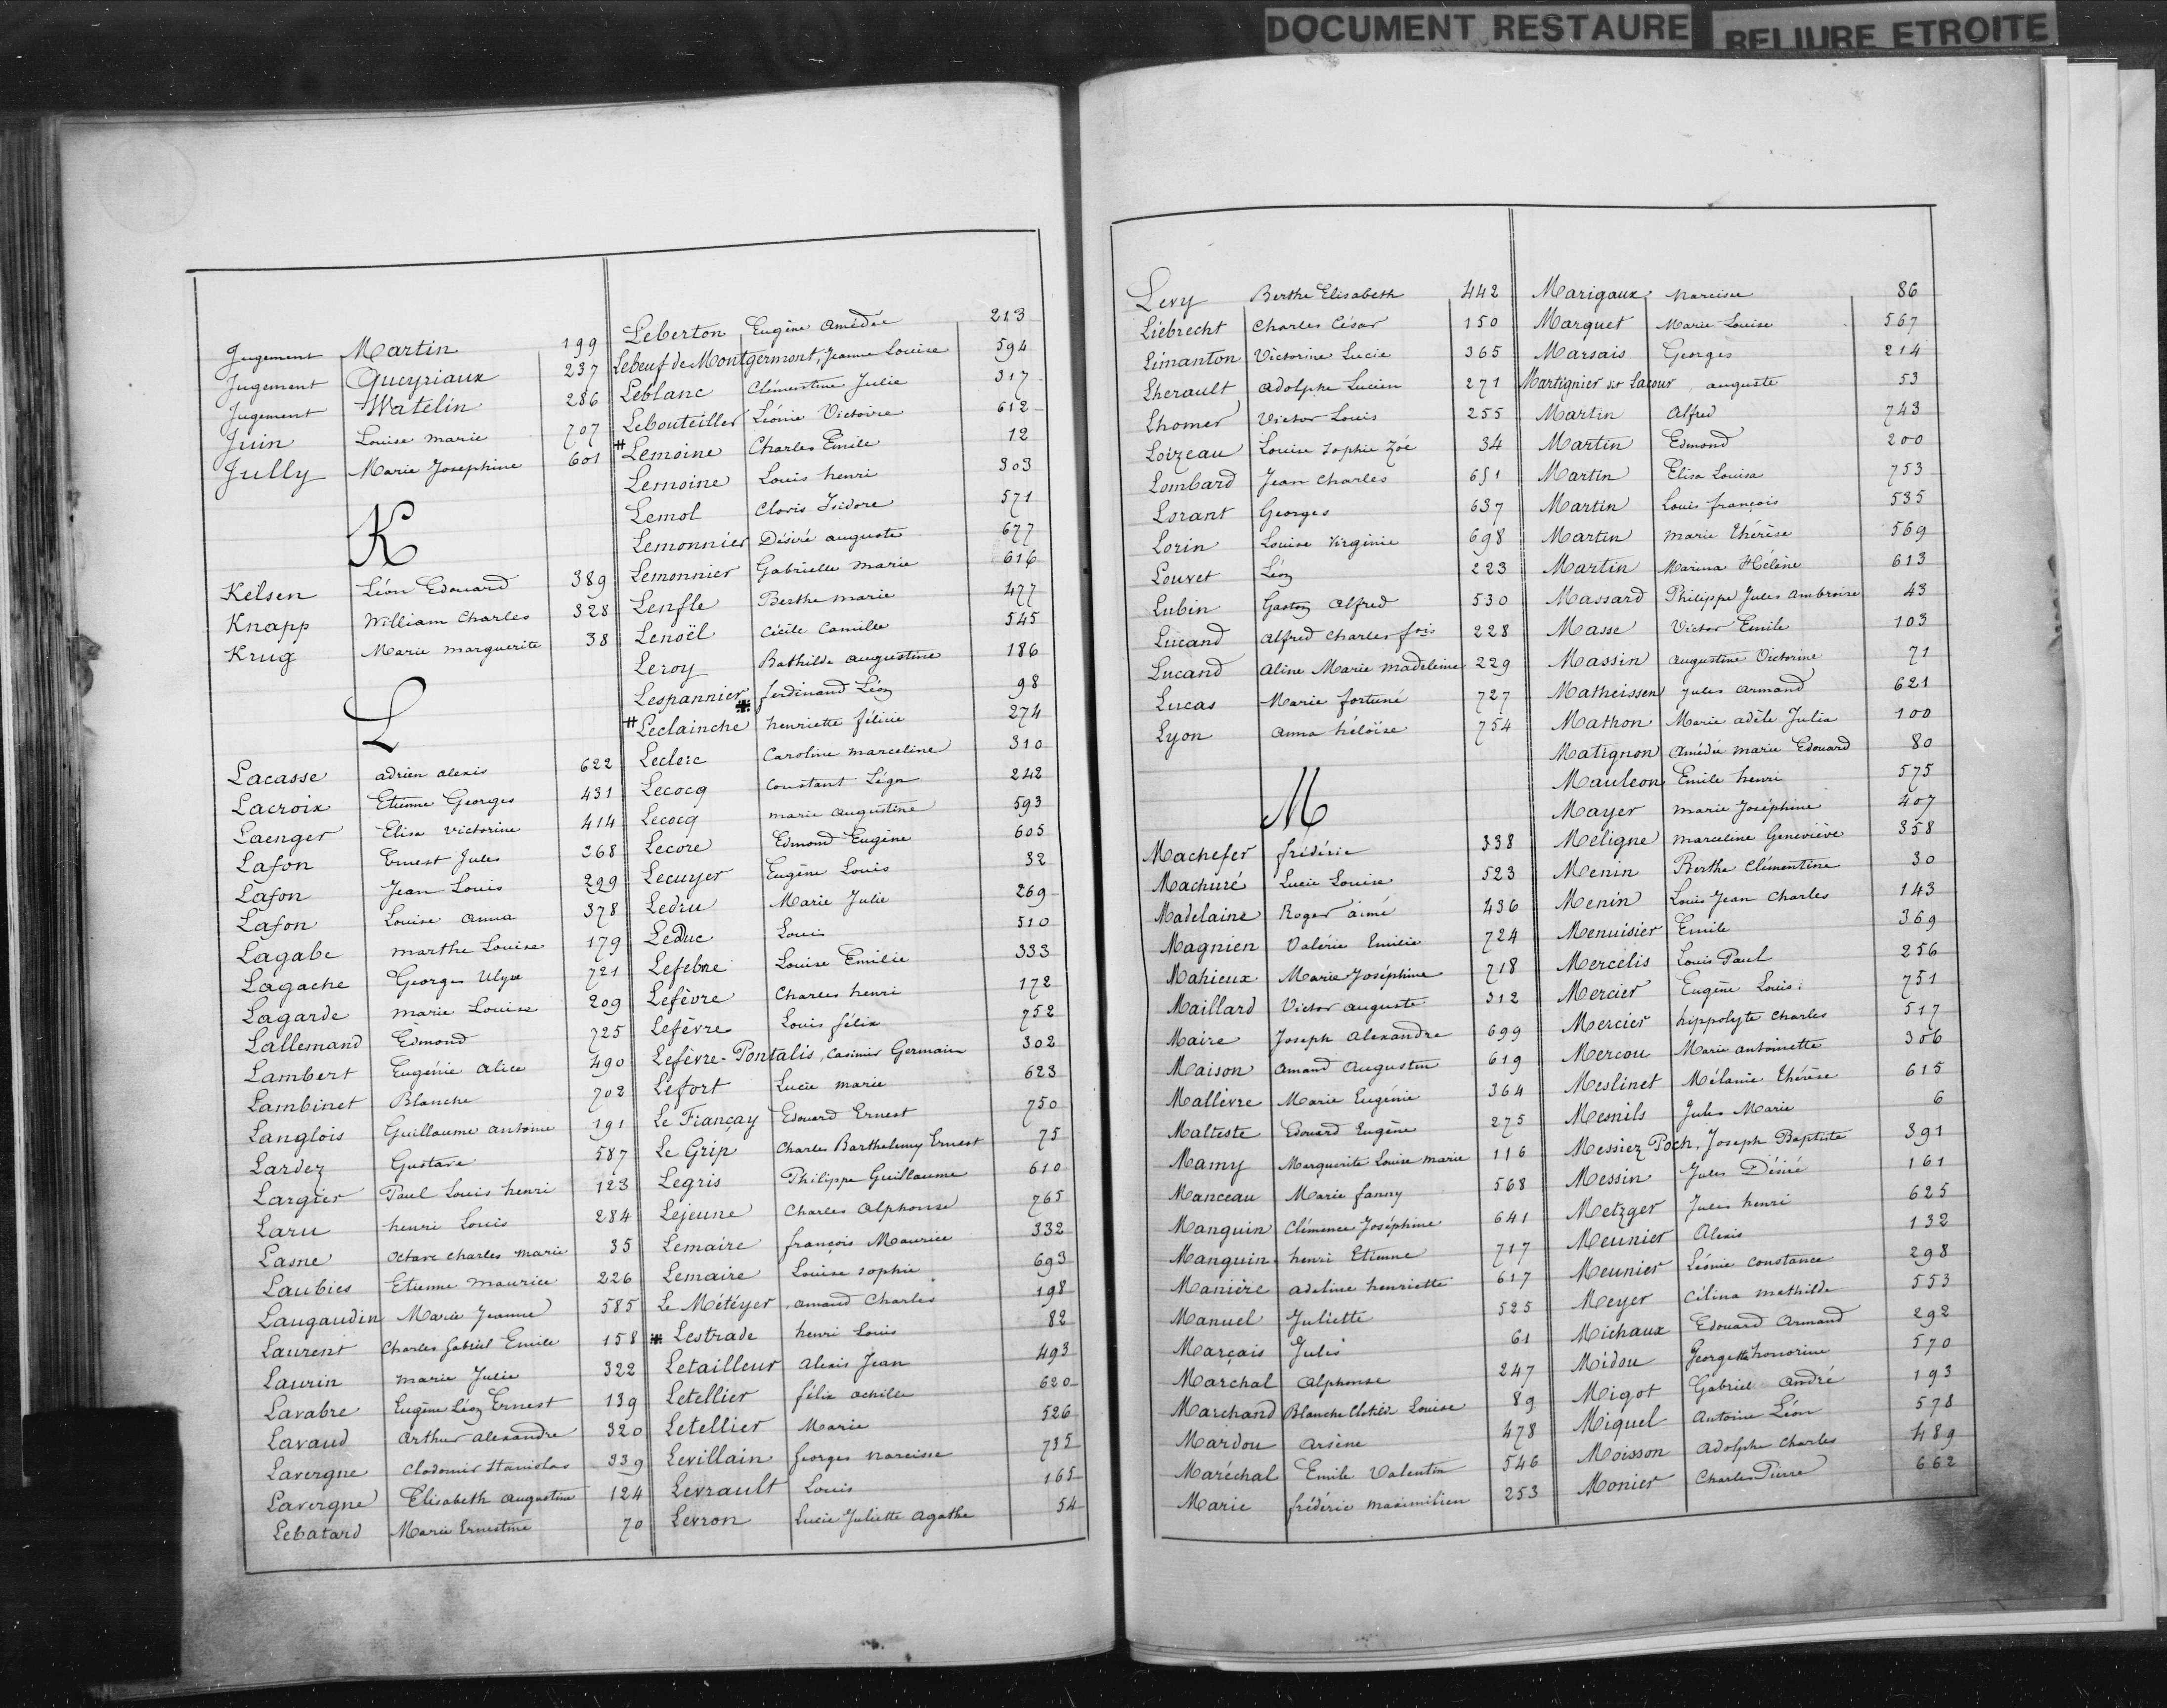 DOCUMENT RESTAURE
RELIURE ETROITE
Jugement Martin 199
Jugement Queyriaux 237
Jugement Watelin 286
Juin Louise Marie 707
Jully Marie Josephine 601
K
Kelsen Léon Edouard 389
Knapp William Charles 328
Krug Marie Marguerite 38
L
Lacasse adrien alexis 622
Lacroix Etienne Georges 431
Laenger Elisa Victorine 414
Lafon Ernest Jules 368
Lafon Jean Louis 299
Lafon Louise Anna 378
Lagabe Marthe Louise 179
Lagache Georges Ulysse 721
Lagarde Marie Louise 209
Lallemand Edmond 725
Lambert Eugénie Alice 490
Lambinet Blanche 702
Langlois Guillaume antoine 191
Lardez Gustave 587
Largier Paul Louis henri 123
Laru henri Louis 284
Lasne Octave Charles Marie 35
Laubies Etienne Maurice 226
Laugaudin Marie Jeanne 585
Laurent Charles Gabriel Emile 158
Laurin Marie Julie 322
Lavabre Eugène Léon Ernest 139
Lavaud Arthur alexandre 320
Lavergne Clodomir Stanislas 339
Lavergne Elisabeth Augustine 124
Lebatard Marie Ernestine 70
Leberton Eugène Amédée 213
Lebeuf de Montgermont, Jeanne Louise 594
Leblanc Clémentine Julie 317
Lebouteiller Léonie Victoire 612
# Lemoine Charles Emile 12
Lemoine Louis henri 303
Lemol Clovis Isidore 571
Lemonnier Désiré auguste 677
Lemonnier Gabrielle Marie 616
Lenfle Berthe Marie 477
Lenoël Cécile Camille 545
Leroy Bathilde Augustine 186
Lespannier ferdinand Léon 98
# Leclainche henriette félicie 274
Leclerc Caroline Marceline 310
Lecocq Constant Léon 242
Lecocq Marie Augustine 593
Lecore Edmond Eugène 605
Lecuyer Eugène Louis 32
Ledru Marie Julie 269
Leduc Louis 510
Lefebvre Louise Emilie 333
Lefèvre Charles henri 172
Lefèvre Louis félix 752
Lefèvre-Pontalis, Casimir Germain 302
Lefort Lucie Marie 623
Le Fiançay Edouard Ernest 750
Le Grip Charles Barthelemy Ernest 75
Legris Philippe Guillaume 610
Lejeune Charles Alphonse 765
Lemaire françois Maurice 332
Lemaire Louise Sophie 693
Le Météyer amand Charles 198
Lestrade henri Louis 82
Letailleur Alexis Jean 493
Letellier félix Achille 620
Letellier Marie 526
Levillain Georges Narcisse 735
Levrault Louis 165
Levron Lucie Juliette Agathe 54
Levy Berthe Elisabeth 442
Liébrecht Charles César 150
Limanton Victorine Lucie 365
Lherault Adolphe Lucien 271
Lhomer Victor Louis 255
Loizeau Louise Sophie Zoé 34
Lombard Jean Charles 651
Lorant Georges 637
Lorin Louise Virginie 698
Louvet Léon 223
Lubin Gaston Alfred 530
Lucand Alfred Charles fois 228
Lucand Aline Marie Madeleine 229
Lucas Marie fortuné 727
Lyon Anna héloïse 754
M
Machefer frédéric 338
Machuré Lucie Louise 523
Madelaine Roger aimé 436
Magnien Valérie Emilie 724
Mahieux Marie Joséphine 718
Maillard Victor Auguste 312
Maire Joseph Alexandre 699
Maison Amand Augustin 619
Mallèvre Marie Eugénie 364
Malteste Edouard Eugène 275
Mamy Marguerite Louise Marie 116
Manceau Marie fanny 568
Manguin Clémence Joséphine 641
Manguin henri Etienne 717
Manière adeline henriette 617
Manuel Juliette 525
Marçais Jules 61
Marchal Alphonse 247
Marchand Blanche Clotilde Louise 89
Mardou Arsène 478
Maréchal Emile Valentin 546
Marie frédéric Maximilien 253
Marigaux Narcisse 86
Marquet Marie Louise 567
Marsais Georges 214
Martignier dit Lacour, auguste 53
Martin Alfred 743
Martin Edmond 200
Martin Elisa Louisa 753
Martin Louis françois 535
Martin Marie Thérèse 569
Martin Marina Hélène 613
Massard Philippe Jules Ambroise 43
Masse Victor Emile 103
Massin Augustine Victorine 71
Matheissen Jules Armand 621
Mathon Marie adèle Julia 100
Matignon Amédée Marie Edouard 80
Mauleon Emile henri 575
Mayer Marie Joséphine 407
Meligne Marceline Geneviève 358
Menin Berthe Clémentine 30
Menin Louis Jean Charles 143
Menuisier Emile 369
Mercelis Louis Paul 256
Mercier Eugène Louis 751
Mercier hippolyte Charles 517
Mercou Marie Antoinette 306
Meslinet Mélanie Thérèse 615
Mesnils Jules Marie 6
Messiez Poch, Joseph Baptiste 391
Messin Jules Désiré 161
Metzger Jules henri 625
Meunier Alexis 132
Meunier Léonie Constance 298
Meyer Célina Mathilde 553
Michaux Edouard Armand 292
Midou Georgette honorine 570
Migot Gabriel André 193
Miquel Antoine Léon 578
Moisson Adolphe Charles 489
Monier Charles Pierre 662